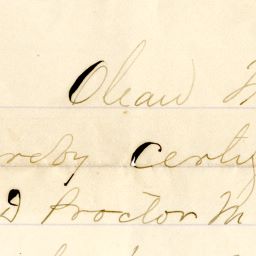 Olean
reby certify
D Proctor M